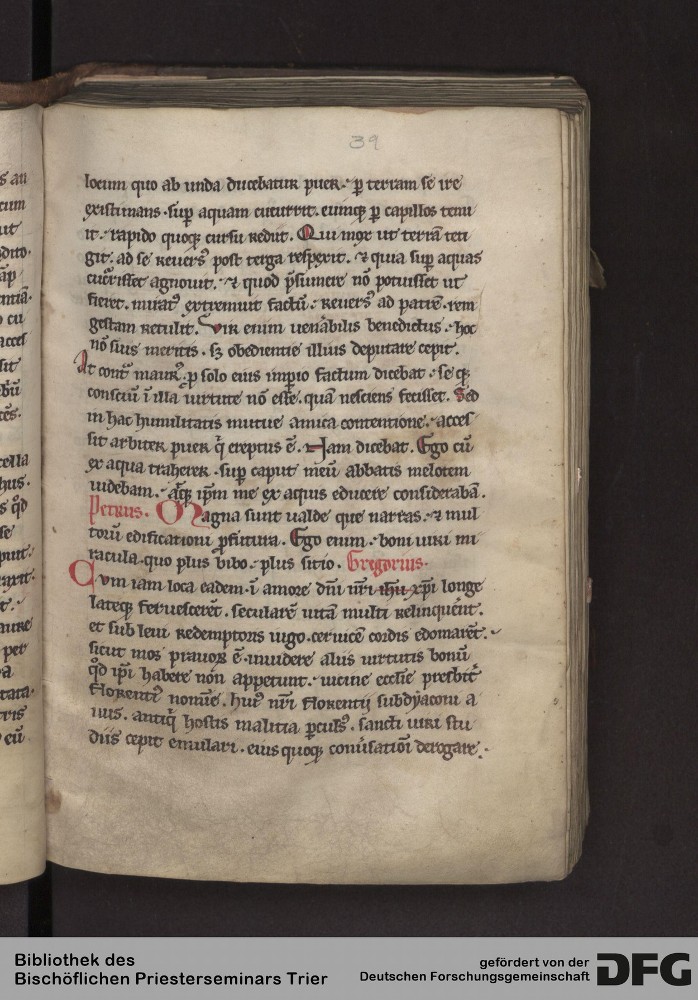 39
locum quo ab unda ducebatur puer. p̄ terram se ire
existimans. sup̄ aquam cucurrit. eumq; p̄ capillos tenu
it. rapido quoq; cursu rediit. Qui mox ut terrā teti
git. ad se reuersꝰ post terga respexit. ⁊ quia sup̄ aquas
cucurrisset agnouit. ⁊ quod p̄sumere nō potuisset ut
fieret. miratꝰ extremuit factū. reuersꝰ ad patrē. rem
gestam retulit. Vir enim uenābilis benedictus. hoc
nō suis meritis. sꝫ obedientie illius deputare cepit.
At contᵃ maurꝰ. p̄ solo eius imp̄io factum dicebat. se q;
consciū ī illa uirtute nō esse. quā nesciens fecisset. Sed
in hac humilitatis mutue amica contentione. acces
sit arbiter puer q̄ ereptus ē. Nam dicebat. Ego cū
ex aqua traherer. sup̄ caput meū abbatis melotem
uidebam. atq; ip̄m me ex aquis educere considerabā.
Petrus. Magna sunt ualde que narras. ⁊ mul
torū edificationi p̄futura. Ego enim. boni uiri mi
racula. quo plus bibo. plus sitio. Gregorius.
Cum iam loca eadem. ī amore dn̄i nr̄i ihu xp̄i longe
lateq; feruescerēt. secularē uitā multi relinquerēt.
et sub leui redemptoris iugo. ceruicē cordis edomarēt.
sicut mos prauoꝝ ē. inuidere aliis uirtutis bonū
qd̄ ip̄i habere non appetunt. uicine ecclīe presbit̄
florentiꝰ nomīe. huiꝰ nr̄i florentii subdyaconi a
uus. antiq̄ hostis malitia p̄culsꝰ. sancti uiri stu
diis cepit emulari. eius quoq; conūsatiōi derogare.
s an
cum
ut
dito.
cu
acces
sit
tēs.
cella
hus.
s qd̄
se
t.
aure
per
a
tata.
tris
eū
Bibliothek des
Bischöflichen Priesterseminars Trier
gefördert von der
Deutschen Forschungsgemeinschaft
DFG